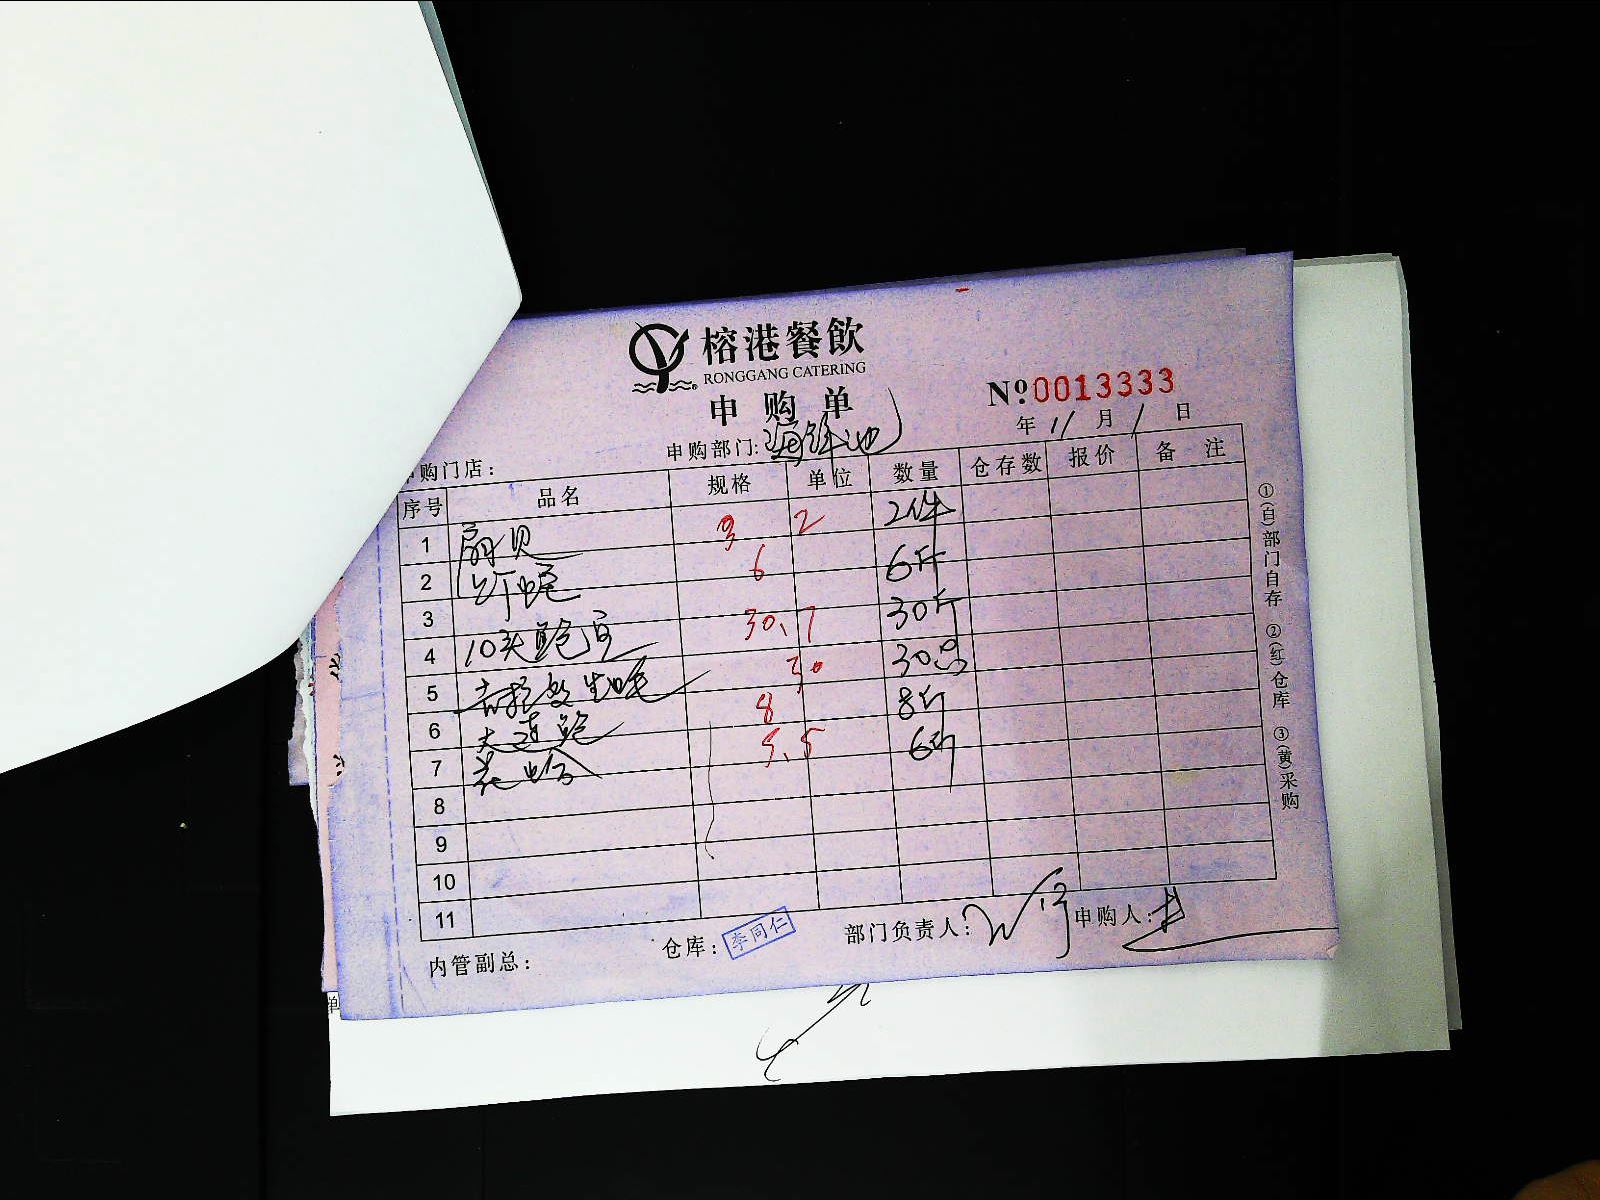 榕港餐飲
RONGGANG CATERING
申购单
Nº:0013333
年 11 月 1 日
购门店: 申购部门: 海鲜池
序号 品名 规格 单位 数量 仓存数 报价 备注
1 扇贝 2 2件
2 6 6斤
3 30.7 30斤
4 10头鲍 30 30只
5 生蚝 8 8斤
6 大连鲍 5.5 6斤
7 花蛤
8
9
10
11
内管副总: 仓库: 李同仁 部门负责人: 申购人:
①(白)部门自存 ②(红)仓库 ③(黄)采购
单